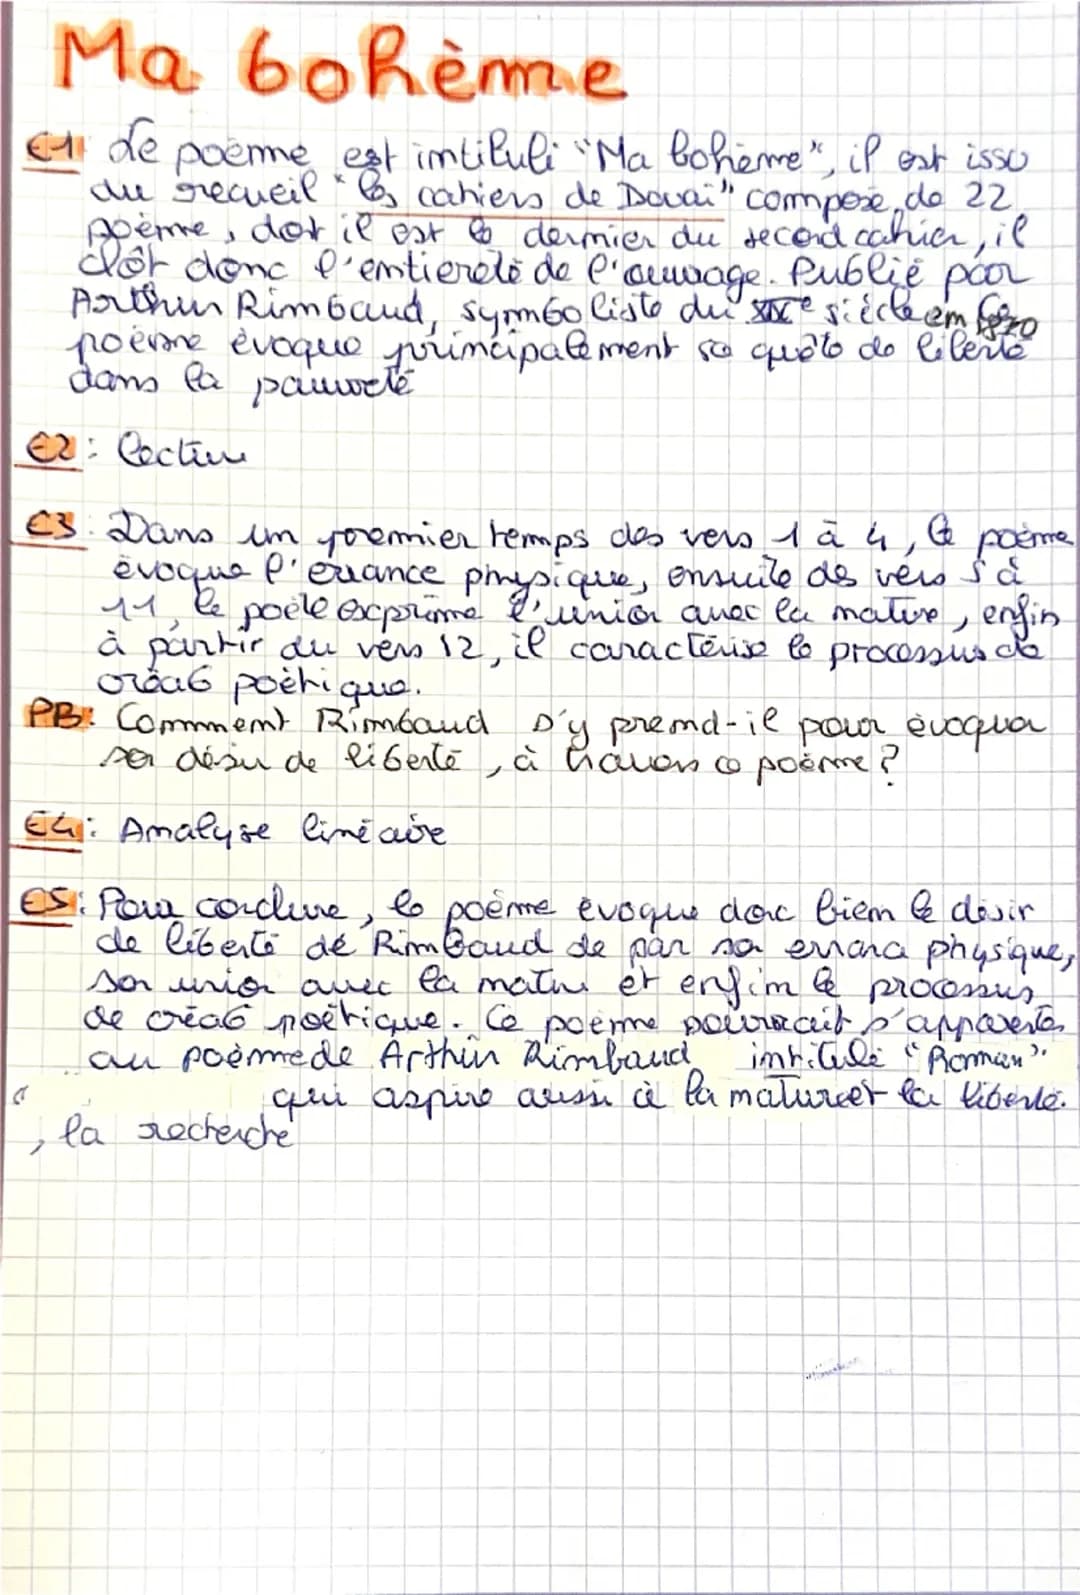 Ma bohème
E1: Le poème est intitulé "Ma bohème", il est issu
du recueil "les cahiers de Douai" composé de 22
poème, dont il est le dernier du second cahier, il
clôt donc l'entièreté de l'ouvrage. Publié par
Arthur Rimbaud, symboliste du XIXe siècle en 1870 ce
poème évoque principalement sa quête de liberté
dans la pauvreté
E2: Lecture
E3: Dans un premier temps des vers 1 à 4, le poème
évoque l'errance physique, ensuite des vers 5 à
11, le poète exprime l'union avec la nature, enfin
à partir du vers 12, il caractérise le processus de
créa° poétique.
PB: Comment Rimbaud s'y prend-il pour évoquer
son désir de liberté, à travers ce poème?
E4: Analyse linéaire
E5: Pour conclure, le poème évoque donc bien le désir
de liberté de Rimbaud de par son errance physique,
son union avec la nature et enfin le processus
de créa° poétique. Ce poème pourrait s'apparenter
au poème de Arthur Rimbaud intitulé "Roman".
qui aspire aussi à la nature et la liberté.
, la recherche